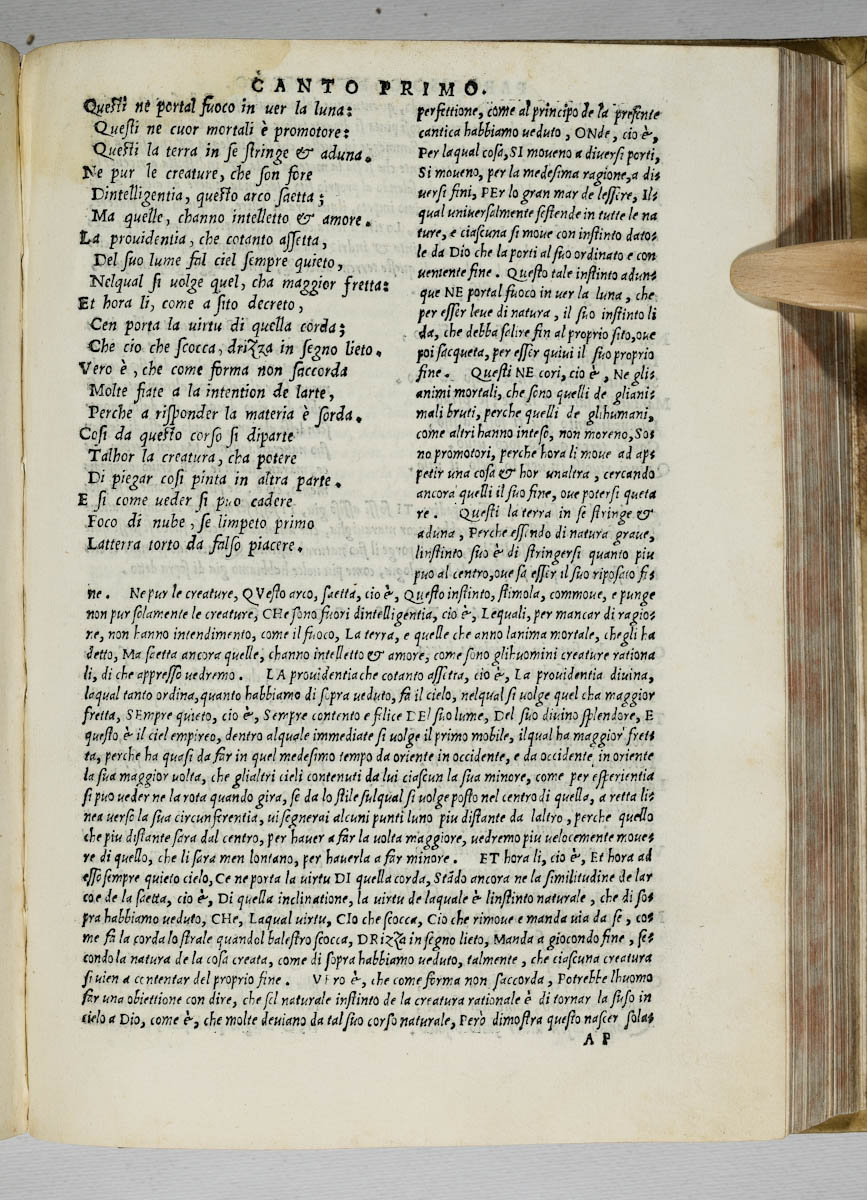 CANTO PRIMO.
Questi ne portal fuoco in uer la luna:
Questi ne cuor mortali è promotore:
Questi la terra in se stringe & aduna.
Ne pur le creature, che son fore
Dintelligentia, questo arco saetta;
Ma quelle, channo intelletto & amore.
La prouidentia, che cotanto assetta,
Del suo lume fal ciel sempre quieto,
Nelqual si uolge quel, cha maggior fretta:
Et hora li, come a sito decreto,
Cen porta la uirtu di quella corda;
Che cio che scocca, drizza in segno lieto.
Vero è, che come forma non saccorda
Molte fiate a la intention de larte,
Perche a risponder la materia è sorda.
Cosi da questo corso si diparte
Talhor la creatura, cha potere
Di piegar cosi pinta in altra parte.
E si come ueder si puo cadere
Foco di nube, se limpeto primo
Latterra torto da falso piacere.
perfettione, come al principo de la presente
cantica habbiamo ueduto, ONde, cio è,
Per laqual cosa, SI moueno a diuersi porti,
Si moueno, per la medesima ragione, a di
uersi fini, PEr lo gran mar de lessere, Il=
qual uniuersalmente sestende in tutte le na
ture, e ciascuna si moue con instinto dato=
le da Dio che la porti al suo ordinato e con
ueniente fine. Questo tale instinto adun=
que NE portal fuoco in uer la luna, che
per esser leue di natura, il suo instinto li
da, che debba salire fin al proprio sito, oue
poi sacqueta, per esser quiui il suo proprio
fine. Questi NE cori, cio è, Ne gli=
animi mortali, che sono quelli de gliani=
mali bruti, perche quelli de glihumani,
come altri hanno inteso, non moreno, So=
no promotori, perche hora li moue ad ap=
petir una cosa & hor unaltra, cercando
ancora quelli il suo fine, oue potersi queta
re. Questi la terra in se stringe &
aduna, Perche essendo di natura graue,
linstinto suo è di stringersi quanto piu
puo al centro, oue sa esser il suo riposato fi=
ne. Ne pur le creature, QVesto arco, saetta, cio è, Questo instinto, stimola, commoue, e punge
non pur solamente le creature, CHe sono fuori dintelligentia, cio è, Lequali, per mancar di ragio=
ne, non hanno intendimento, come il fuoco, La terra, e quelle che anno lanima mortale, chegli ha
detto, Ma saetta ancora quelle, channo intelletto & amore, come sono glihuomini creature rationa
li, di che appresso uedremo. LA prouidentia che cotanto assetra, cio è, La prouidentia diuina,
laqual tanto ordina, quanto habbiamo di sopra ueduto, fa il cielo, nelqual si uolge quel cha maggior
fretta, SEmpre quieto, cio è, Sempre contento e filice DEl suo lume, Del suo diuino splendore, E
questo è il ciel empireo, dentro alquale immediate si uolge il primo mobile, ilqual ha maggior fret=
ta, perche ha quasi da far in quel medesimo tempo da oriente in occidente, e da occidente in oriente
la sua maggior uolta, che glialtri cieli contenuti da lui ciascun la sua minore, come per esperientia
si puo ueder ne la rota quando gira, se da lo stile sulqual si uolge posto nel centro di quella, a retta li=
nea uerso la sua circunferentia, ui segnerai alcuni punti luno piu distante da laltro, perche quello
che piu distante sara dal centro, per hauer a far la uolta maggiore, uedremo piu uelocemente moue=
re di quello, che li sara men lontano, per hauerla a far minore. ET hora li, cio è, Et hora ad
esso sempre quieto cielo, Ce ne porta la uirtu DI quella corda, Stādo ancora ne la similitudine de lar
co e de la saetta, cio è, Di quella inclinatione, la uirtu de laquale è linstinto naturale, che di so=
pra habbiamo ueduto, CHe, Laqual uirtu, CIo che scocca, Cio che rimoue e manda uia da se, co=
me fa la corda lo strale quandol balestro scocca, DRizza in segno lieto, Manda a giocondo fine, se=
condo la natura de la cosa creata, come di sopra habbiamo ueduto, talmente, che ciascuna creatura
si uien a contentar del proprio fine. VEro è, che come forma non saccorda, Potrebbe lhuomo
far una obiettione con dire, che sel naturale instinto de la creatura rationale è di tornar la suso in
cielo a Dio, come è, che molte deuiano da tal suo corso naturale, Però dimostra questo nascer sola=
AP